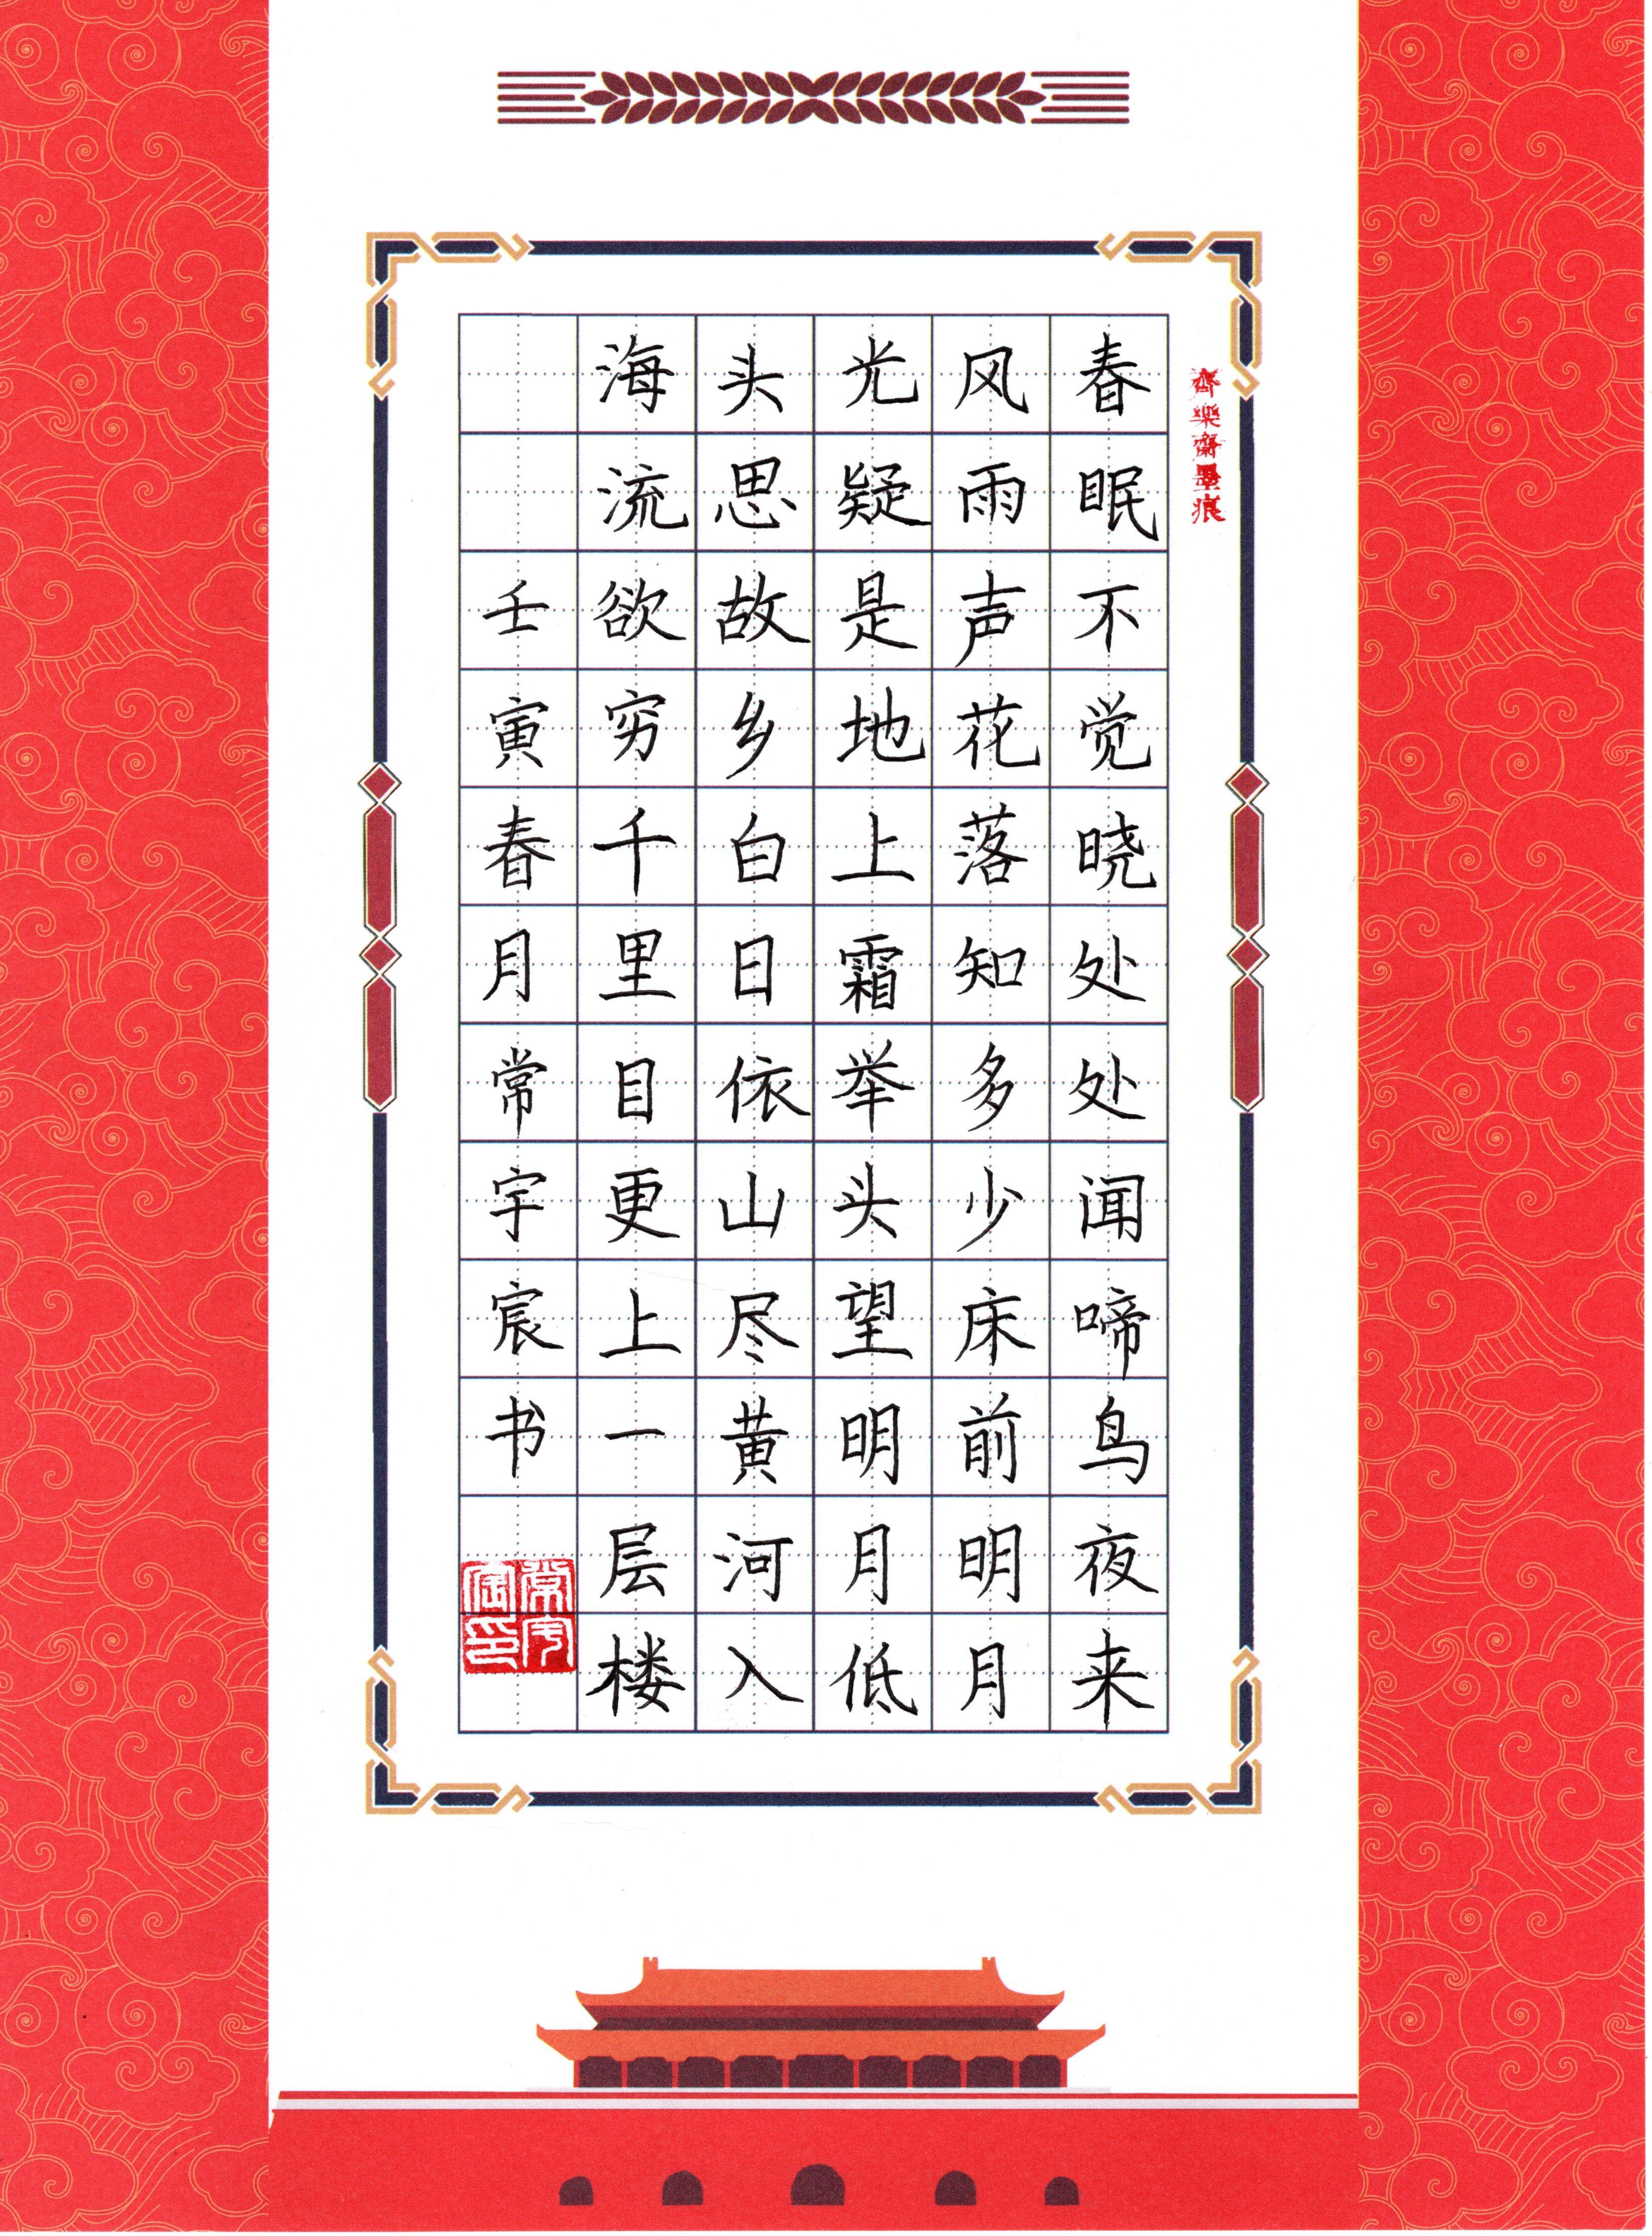 樂齋墨痕
春眠不觉晓处处闻啼鸟夜来
风雨声花落知多少床前明月
光疑是地上霜举头望明月低
头思故乡白日依山尽黄河入
海流欲穷千里目更上一层楼
壬寅春月常宇宸书
常宇宸印